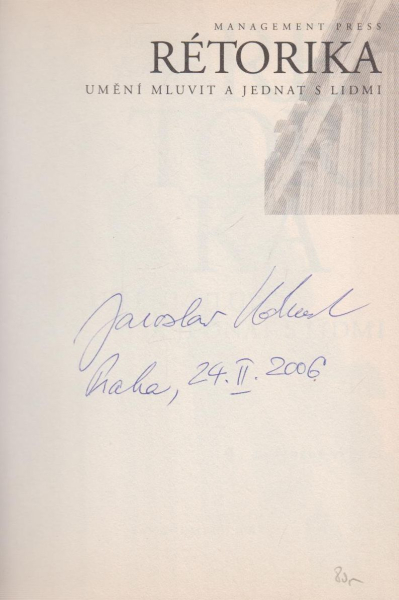 MANAGEMENT PRESS
RÉTORIKA
UMĚNÍ MLUVIT A JEDNAT S LIDMI
Jaroslav
Praha, 24. II. 2006
80,-